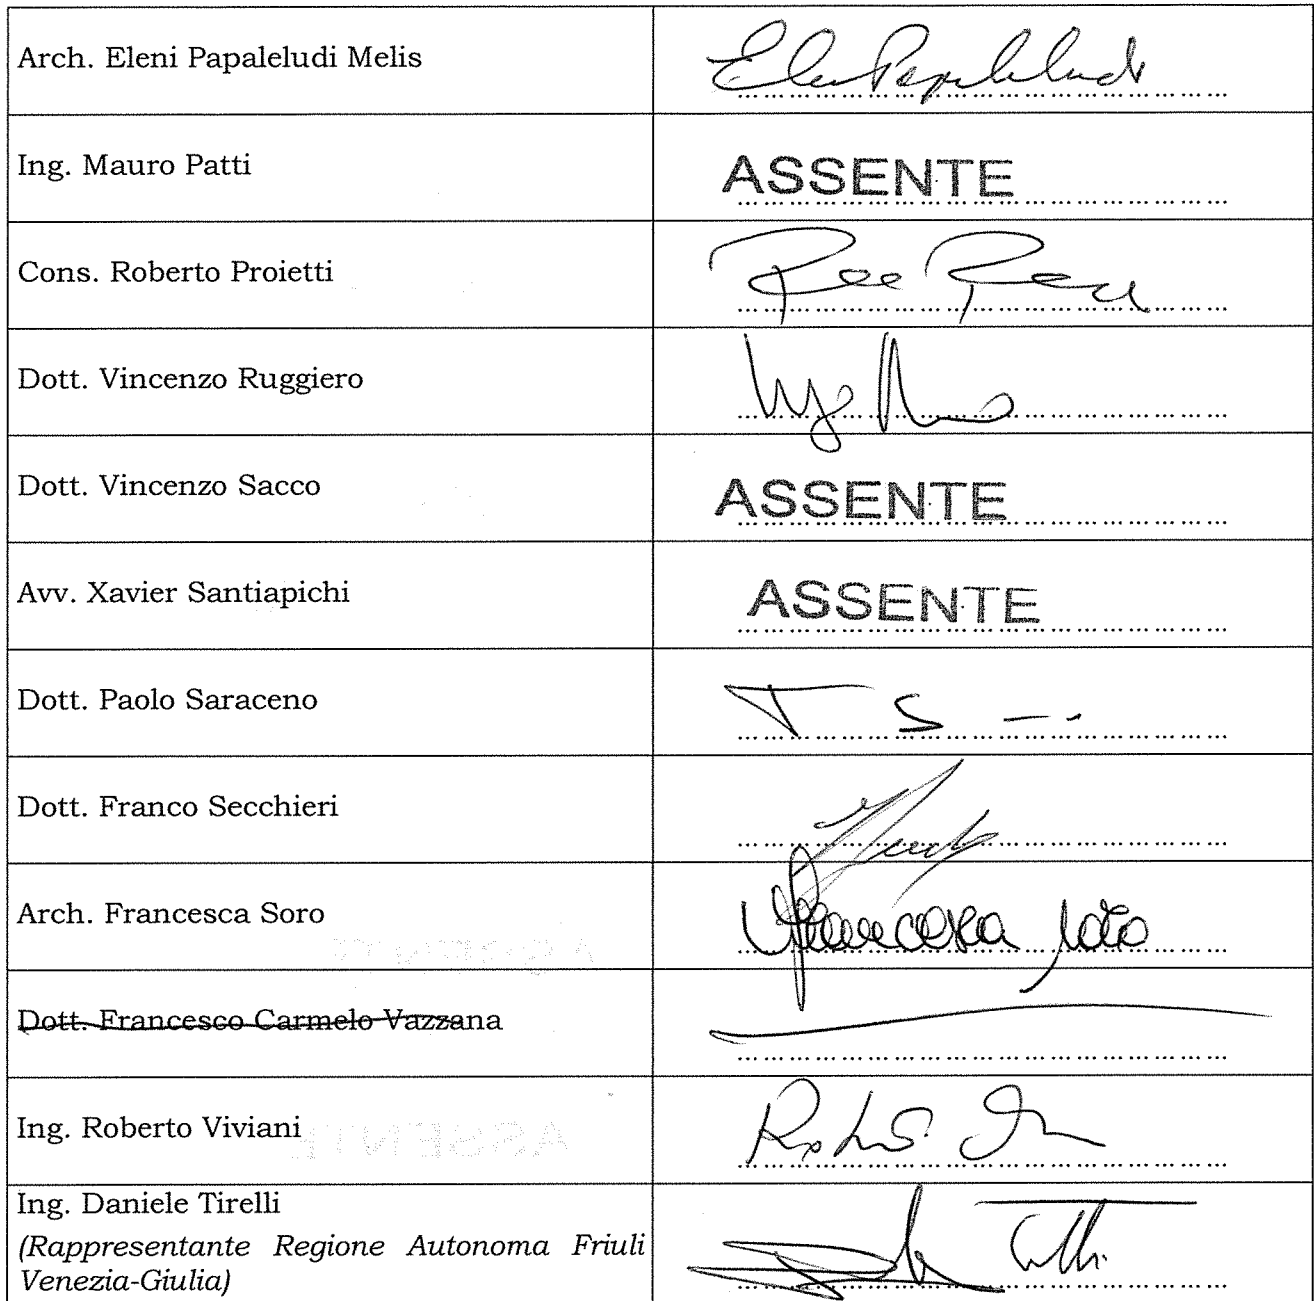 Arch. Eleni Papaleludi Melis
Ing. Mauro Patti
ASSENTE
Cons. Roberto Proietti
Dott. Vincenzo Ruggiero
Dott. Vincenzo Sacco
ASSENTE
Avv. Xavier Santiapichi
ASSENTE
Dott. Paolo Saraceno
Dott. Franco Secchieri
Arch. Francesca Soro
Francesca Soro
Dott. Francesco Carmelo Vazzana
Ing. Roberto Viviani
Ing. Daniele Tirelli
(Rappresentante Regione Autonoma Friuli
Venezia-Giulia)